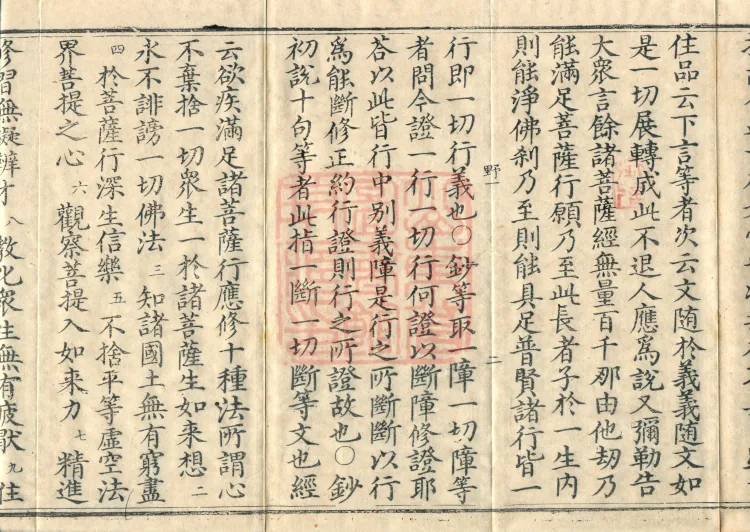 住品云下言等者次云文随於義義随文如
是一切展轉成此不退人應爲說又彌勒告
大衆言餘諸菩薩經無量百千那由他劫乃
能滿足菩薩行願乃至此長者子於一生内
則能淨佛刹乃至則能具足普賢諸行皆一
野一
二
行即一切行義也〇鈔等取一障一切障等
者問今證一行一切行何證以斷障修證耶
荅以此皆行中别義障是行之所斷斷以行
爲能斷修正約行證則行之所證故也〇鈔
初說十句等者此指一斷一切斷等文也經
云欲疾滿足諸菩薩行應修十種法所謂心
不棄捨一切衆生一於諸菩薩生如来想二
永不誹謗一切佛法三知諸國土無有窮盡
四於菩薩行深生信樂五不捨平等虚空法
界菩提之心六觀察菩提入如来力七精進
修習無礙辯才八教化衆生無有疲厭九住